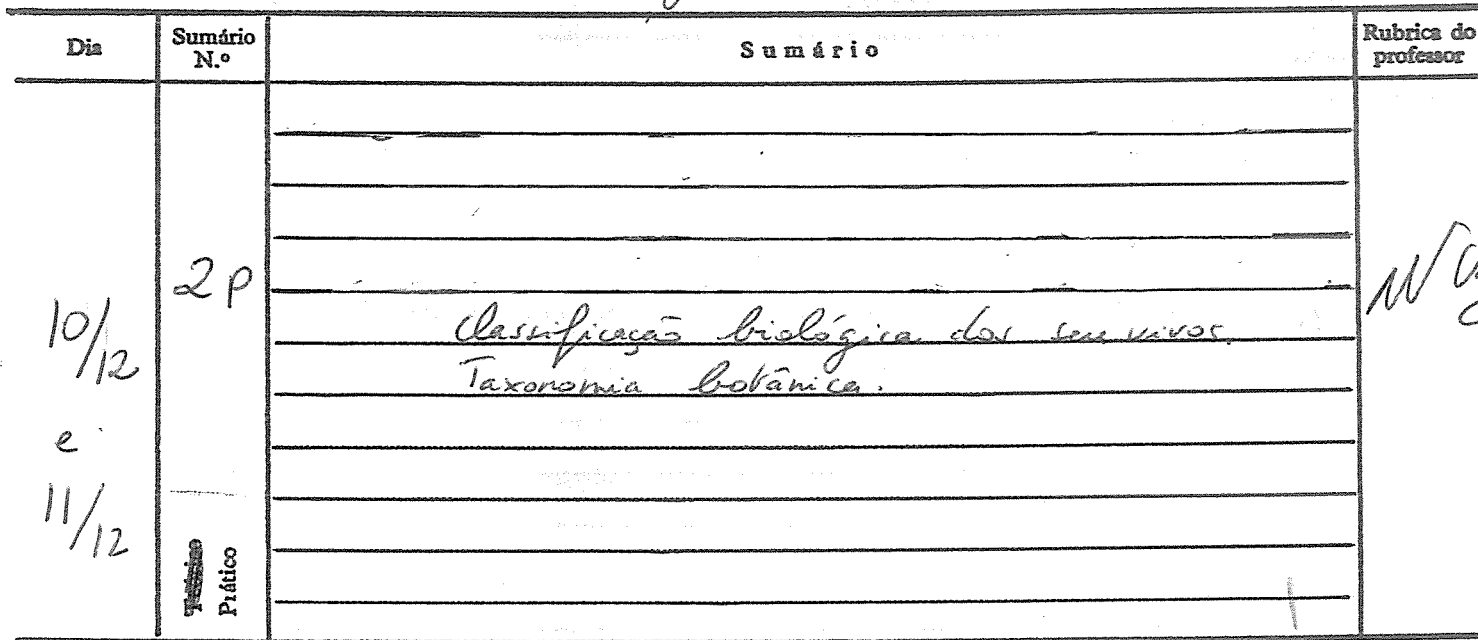 Dia
Sumário N.º
Sumário
Rubrica do professor
10/12
e
11/12
2 P
Classificação biológica dos seres vivos.
Taxonomia botânica.
Prático